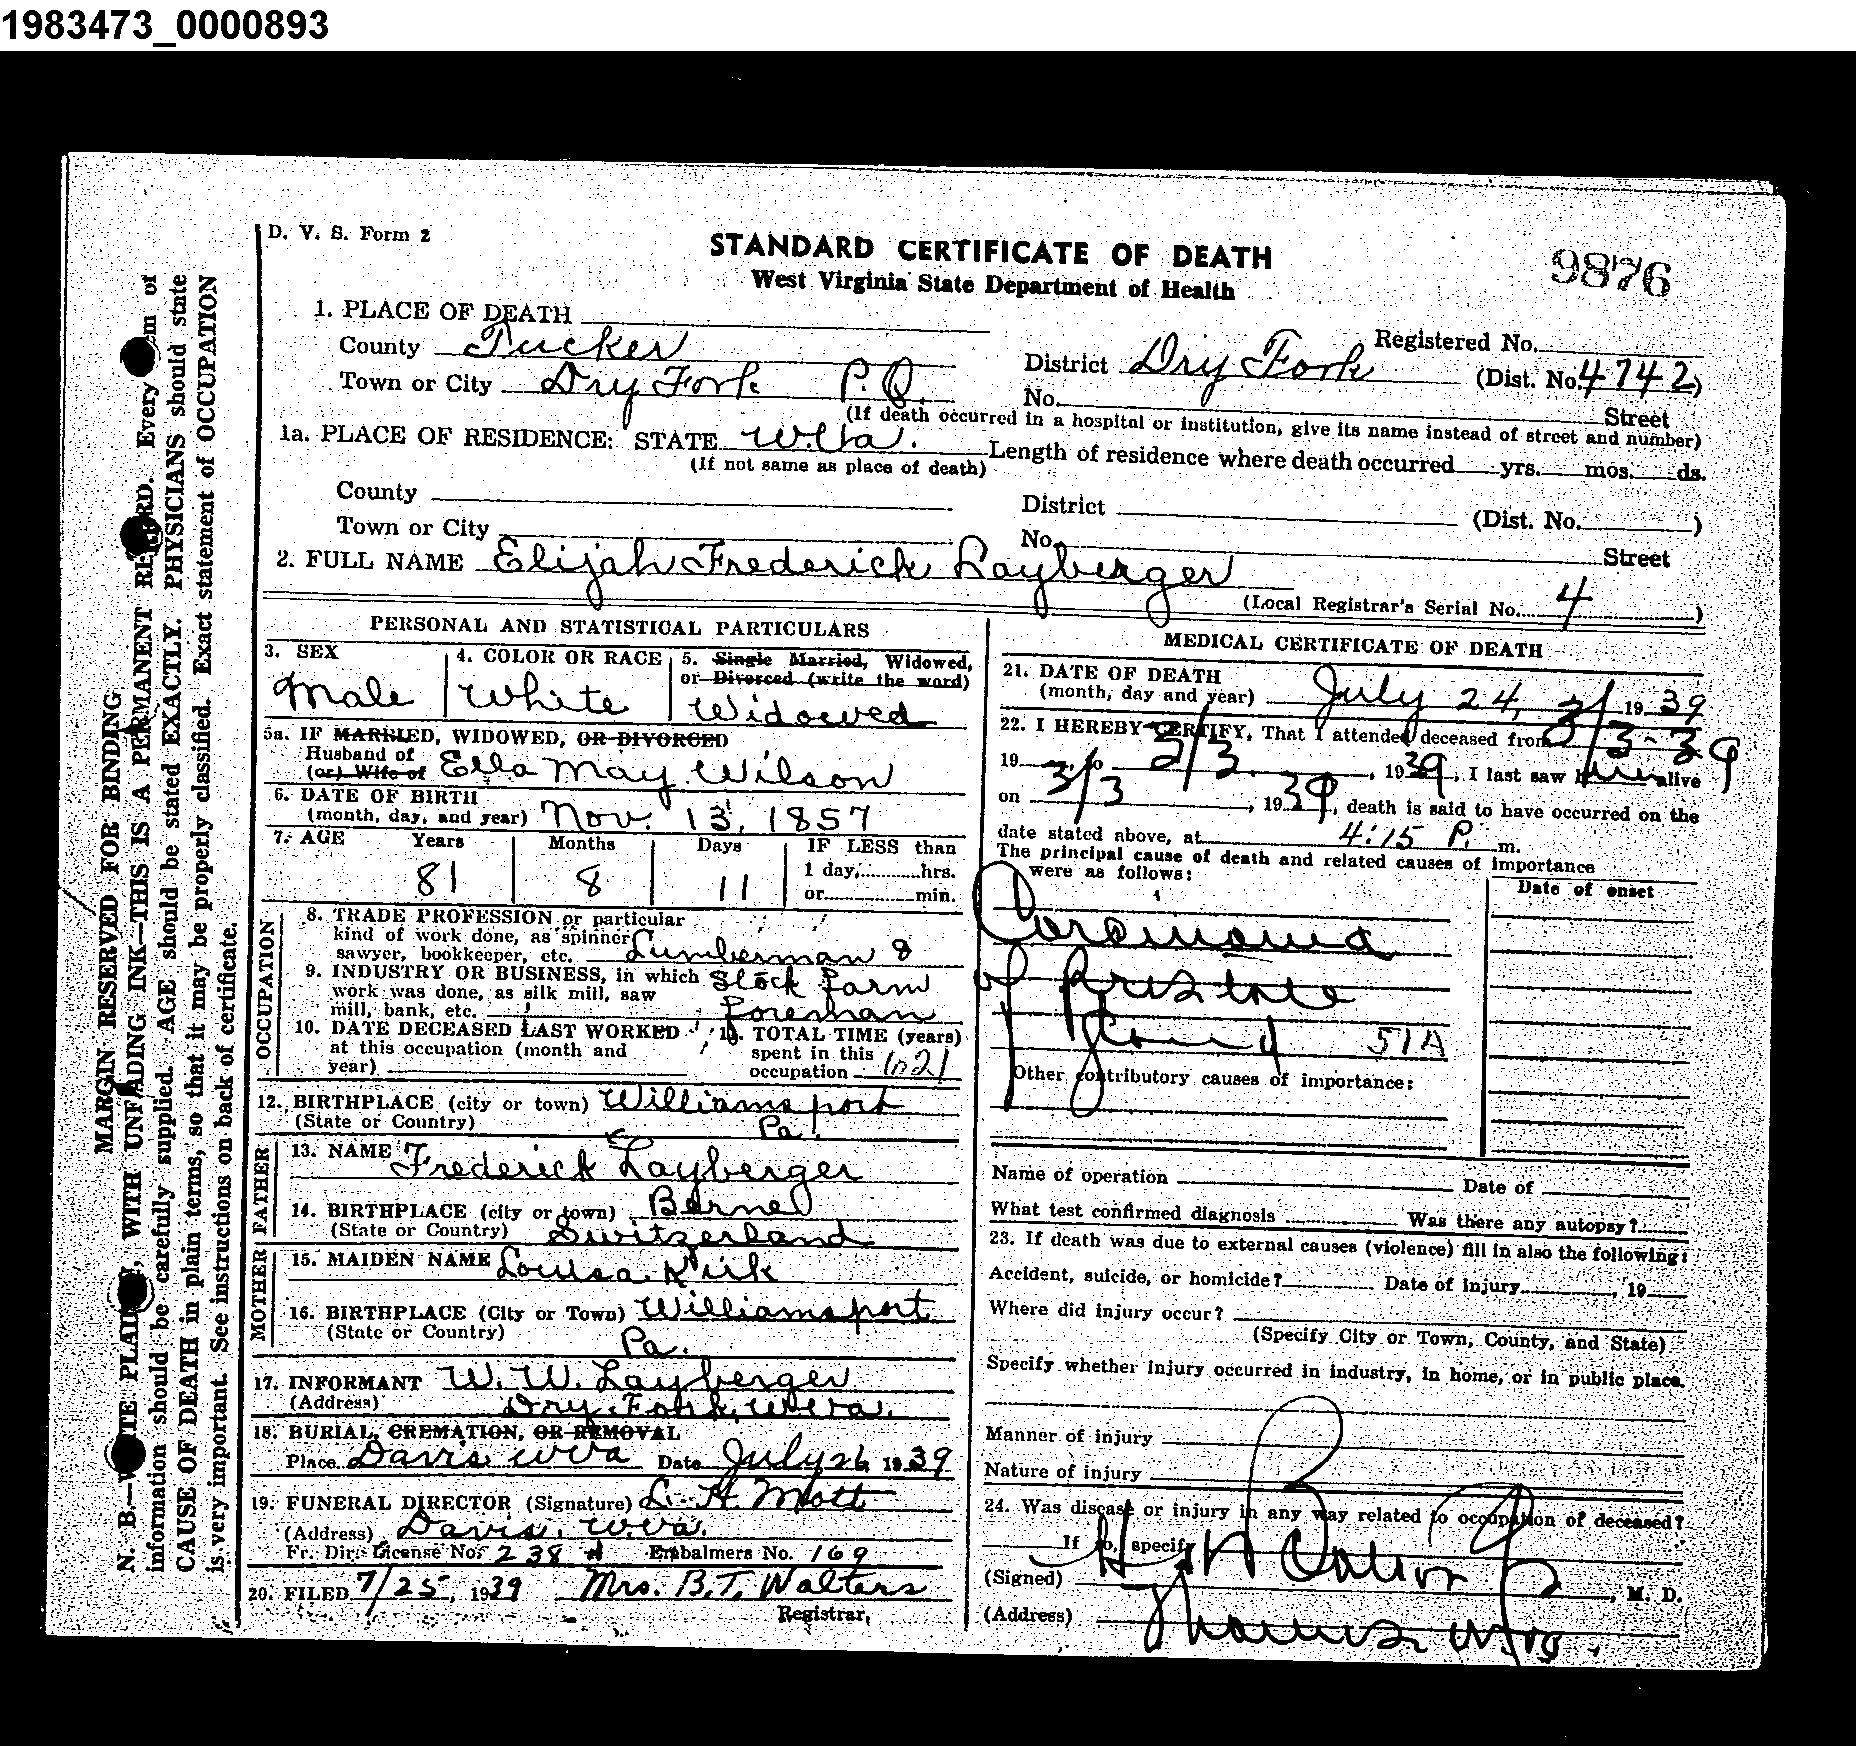 1983473_0000893
D. V. S. Form 2
STANDARD CERTIFICATE OF DEATH
West Virginia State Department of Health
9876
1. PLACE OF DEATH
Registered No.
County Tucker
District Dry Fork (Dist. No. 4742)
Town or City Dry Fork P.O.
No. Street
(If death occurred in a hospital or institution, give its name instead of street and number)
1a. PLACE OF RESIDENCE: STATE W.Va.
(If not same as place of death)
Length of residence where death occurred yrs. mos. ds.
County
District (Dist. No. )
Town or City
No. Street
2. FULL NAME Elijah Frederick Layberger
(Local Registrar's Serial No. 4 )
PERSONAL AND STATISTICAL PARTICULARS
3. SEX
Male
4. COLOR OR RACE
White
5. Single Married, Widowed,
or Divorced (write the word)
Widowed
5a. IF MARRIED, WIDOWED, OR DIVORCED
Husband of
(or) Wife of Ella May Wilson
6. DATE OF BIRTH
(month, day, and year) Nov. 13, 1857
7. AGE Years Months Days IF LESS than
81 8 11
1 day, hrs.
or min.
OCCUPATION
8. TRADE PROFESSION or particular
kind of work done, as spinner,
sawyer, bookkeeper, etc. Lumberman &
9. INDUSTRY OR BUSINESS, in which
work was done, as silk mill, saw
mill, bank, etc.
Stock farm
foreman
10. DATE DECEASED LAST WORKED
at this occupation (month and
year)
11. TOTAL TIME (years)
spent in this
occupation
12. BIRTHPLACE (city or town) Williamsport
(State or Country) Pa.
FATHER
13. NAME Frederick Layberger
14. BIRTHPLACE (city or town) Berne
(State or Country) Switzerland
MOTHER
15. MAIDEN NAME Louisa Kirk
16. BIRTHPLACE (City or Town) Williamsport
(State or Country) Pa.
17. INFORMANT W. W. Layberger
(Address) Dry Fork, W.Va.
18. BURIAL, CREMATION, OR REMOVAL
Place Davis W Va Date July 26 1939
19. FUNERAL DIRECTOR (Signature) L. H Mott
(Address) Davis, W.Va.
Fr. Dir. License No. 238 Embalmers No. 169
20. FILED 7/25, 1939 Mrs. B.T. Walters
Registrar.
MEDICAL CERTIFICATE OF DEATH
21. DATE OF DEATH
(month, day and year) July 24, 1939
22. I HEREBY CERTIFY, That I attended deceased from 3/3-39
19 , to 3/3, 1939, I last saw him alive
on 3/3, 1939, death is said to have occurred on the
date stated above, at 4:15 P. m.
The principal cause of death and related causes of importance
were as follows:
Date of onset
Carcinoma
of Prostate
Gland 51A
Other contributory causes of importance:
Name of operation Date of
What test confirmed diagnosis Was there any autopsy?
23. If death was due to external causes (violence) fill in also the following:
Accident, suicide, or homicide? Date of injury , 19
Where did injury occur?
(Specify City or Town, County, and State)
Specify whether injury occurred in industry, in home, or in public place.
Manner of injury
Nature of injury
24. Was disease or injury in any way related to occupation of deceased?
If so, specify
(Signed) , M. D.
(Address) Thomas W.Va.
MARGIN RESERVED FOR BINDING
N. B.—WRITE PLAINLY, WITH UNFADING INK—THIS IS A PERMANENT RECORD. Every item of
information should be carefully supplied. AGE should be stated EXACTLY. PHYSICIANS should state
CAUSE OF DEATH in plain terms, so that it may be properly classified. Exact statement of OCCUPATION
is very important. See instructions on back of certificate.